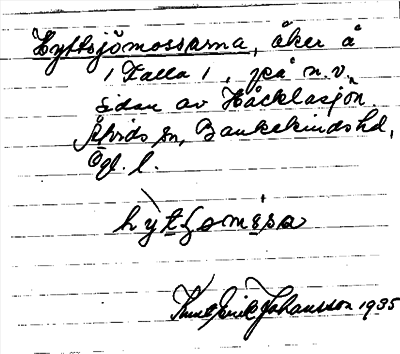 Hyttsjömossarna, åker å
1 Falla 1, på n.v.
sidan av Håcklasjön.
Åtvids sn, Bankekinds hd,
Ögl. l.
Knut Erik Johansson 1935